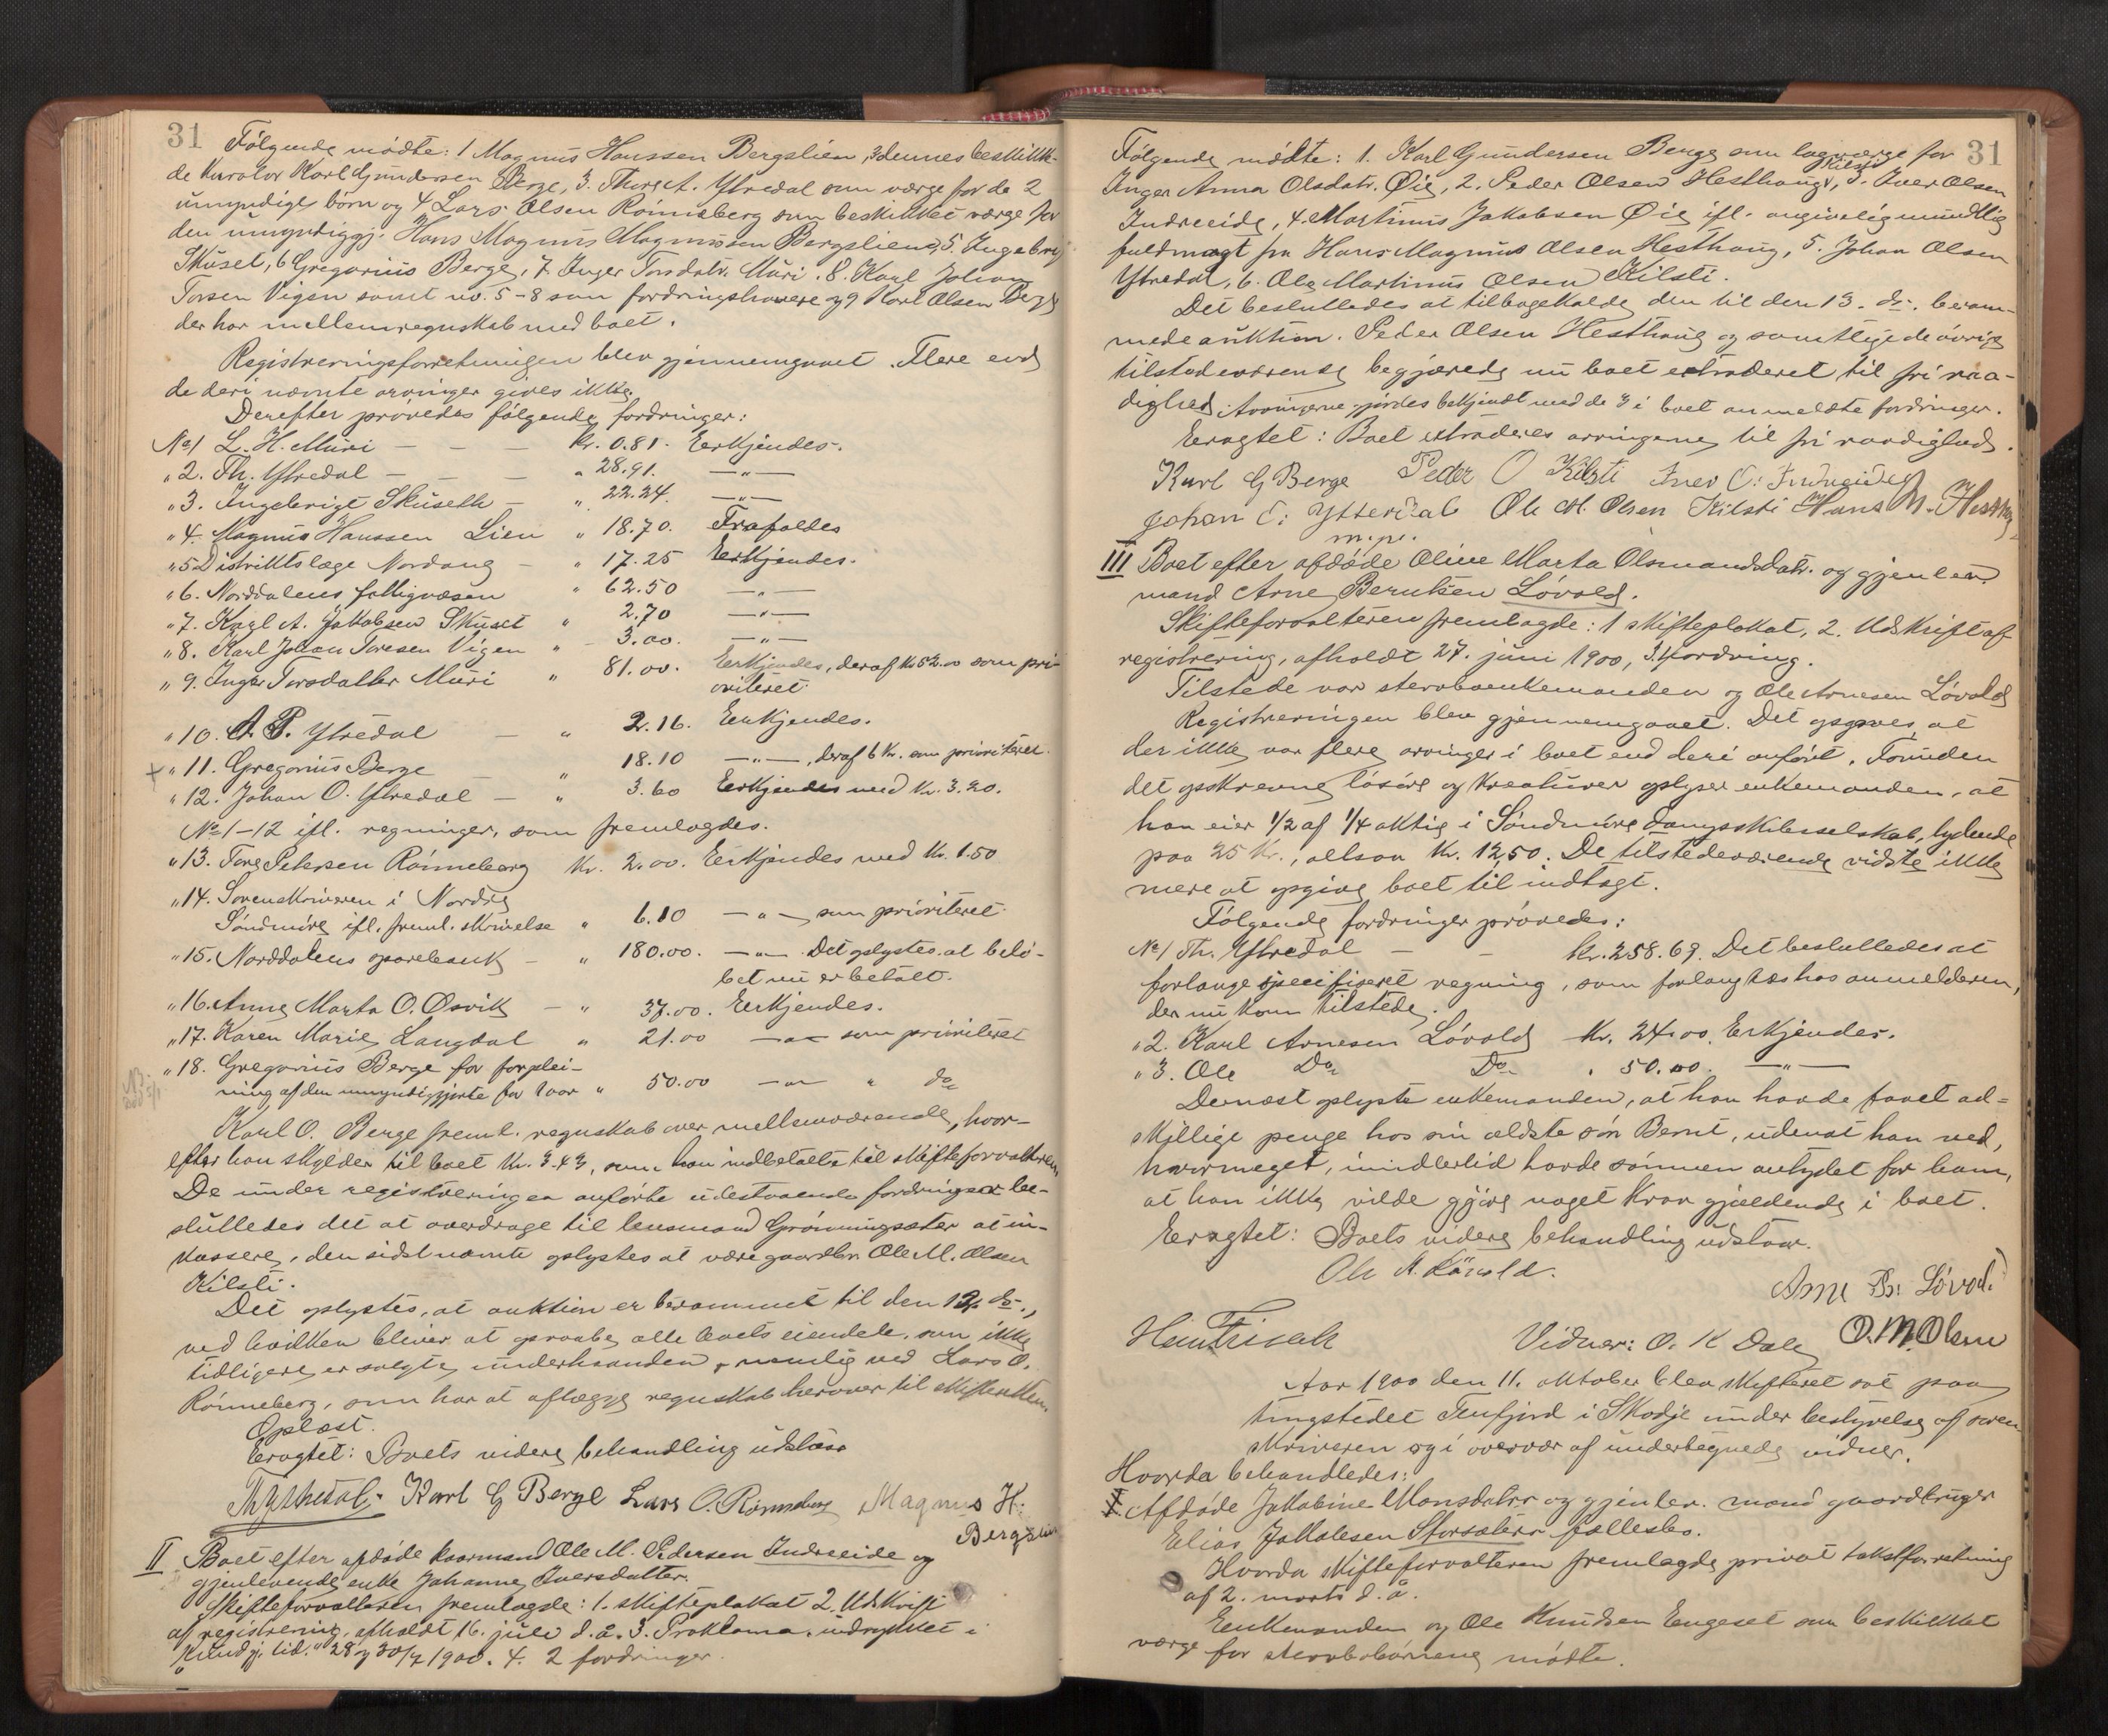 31
Følgende mødte: 1 Magnus Hanssen Bergslien, 2 dennes beskikke-
de kurator Karl Gundersen Berge, 3. Thore A. Ytredal som værge for de 2
umyndige børn og 4 Lars Olsen Rønneberg som beskikket værge for
den umyndiggj. Hans Magnus Magnussen Bergslien, 5. Ingebrigt
Skuset, 6 Gregorius Berge, 7. Inger Torsdatr. Muri. 8. Karl Johan
Torsen Vigen samt no. 5-8 som fordringshavere og 9 Karl Olsen Berge
der har mellemregnskab med boet.
Registreringsforretningen blev gjennemgaaet. Flere end
de deri nævnte arvinger gives ikke.
Derefter prøvedes følgende fordringer:
No 1 L. H. Muri — — — kr. 0.81. Erkjendes.
" 2. Th. Ytredal — — " 28.91. —"—
" 3. Ingebrigt Skuseth — " 22.24. —"—
" 4. Magnus Hanssen Lien " 18.70. Frafaldes
" 5 Distriktslæge Nordang — " 17.25 Erkjendes.
" 6. Norddalens fattigvæsen " 62.50 —"—
" 7. Karl A. Jakobsen Skuset " 2.70 —"—
" 8. Karl Johan Toresen Vigen " 3.00. —"—
" 9. Inger Torsdatter Muri " 81.00. Erkjendes, deraf kr 52.00 som pri-
oritéret.
" 10. A. P. Ytredal — " 2.16. Erkjendes.
+ " 11. Gregorius Berge " 18.10 —"—, deraf 6 kr. som prioritéret.
" 12. Johan O. Ytredal — " 3.60 Erkjendes med kr. 3.20.
No 1-12 ifl. regninger, som fremlagdes.
" 13. Tore Petersen Rønneberg kr. 2.00. Erkjendes med kr. 1.50
" 14. Sorenskriveren i Nordre
Søndmøre ifl. freml. skrivelse " 6.10 —"— som prioritéret.
" 15. Norddalens sparebank — " 180.00. —"— Det oplystes at belø-
bet nu er betalt.
" 16. Anne Marta O. Øsvik — " 37.00. Erkjendes.
" 17. Karen Marie Langdal " 21.00 —"— som prioritéret
" 18. Gregorius Berge for forplei-
ning af den umyndiggjorte for 1 aar " 50.00 —"— " do
Karl O. Berge freml. regnskab over mellemværende, hvor-
efter han skylder til boet kr. 3.43, som han indbetalte til skifteforvalteren
De under registreringen anførte udestaaende fordringer be-
sluttedes det at overdrage til lensmand Grønningsæter at in-
kassere, den sidst nævnte oplystes at være gaardbr. Ole M. Olsen
Kilsti.
Det oplystes, at auktion er berammet til den 12. ds.,
ved hvilken bliver at opraabe alle boets eiendele, som ikke
tidligere er solgte underhaanden, nemlig ved Lars O.
Rønneberg, som har at aflægge regnskab herover til skifteretten.
Oplæst.
Eragtet: Boets videre behandling udstaar
Th Ytredal. Karl G Berge Lars O. Rønneberg Magnus H.
Bergslien
II Boet efter afdøde kaarmand Ole M. Pedersen Indreeide og
gjenlevende enke Johanne Iversdatter.
Skifteforvalteren fremlagde: 1. skifteplakat 2. Udskrift
af registrering, afholdt 16. juli d.å. 3. Proklama, indrykket i
"Kundgj. tid." 28 og 30/7 1900. 4. 2 fordringer.
31
Følgende mødte: 1. Karl Gundersen Berge som lagværge for
Inger Anna Olsdatr. Øie, 2. Peder Olsen Hesthaug, Kilsti, 3. Iver Olsen
Indreeide, 4. Martinus Jakobsen Øie ifl. angivelig mundtlig
fuldmagt fra Hans Magnus Olsen Hesthaug, 5. Johan Olsen
Ytredal, 6. Ole Martinus Olsen Kilsti.
Det besluttedes at tilbagekalde den til den 13. ds. beram-
mede auktion. Peder Olsen Hesthaug og samtlige de øvrige
tilstedeværende begjærede nu boet extraderet til fri raa-
dighed. Arvingerne gjordes bekjendt med de 3 i boet anmeldte fordringer.
Eragtet: Boet extraderes arvingerne til fri raadighed.
Karl G Berge Peder O Kilsti Iver O: Indreeide
Johan O: Ytterdal Ole M. Olsen Kilsti Hans M. Hesthag
m.p.
III Boet efter afdøde Oline Marta Olsmandsdatr. og gjenlev.
mand Arne Berntsen Løvold.
Skifteforvalteren fremlagde: 1 skifteplakat, 2. Udskrift af
registrering, afholdt 27. juni 1900, 3. 1 fordring.
Tilstede var stervboenkemanden og Ole Arnesen Løvold
Registreringen blev gjennemgaaet. Det opgaves, at
der ikke var flere arvinger i boet end deri anført. Foruden
det opskrevne løsøre og kreaturer oplyser enkemanden, at
han eier 1/2 af 1/4 aktie i Søndmøre dampskibsselskab, lydende
paa 25 kr., altsaa kr. 12,50. De tilstedeværende vidste ikke
mere at opgive boet til indtægt.
Følgende fordringer prøvedes:
No 1 Th. Ytredal — — kr. 258.69. Det besluttedes at
forlange specifiseret regning, som forlangtes hos anmelderen,
der nu kom tilstede.
" 2. Karl Arnesen Løvold kr. 24.00. Erkjendes.
" 3. Ole Do Do " 50.00. —"—
Dernæst oplyste enkemanden, at han havde faaet ad-
skillige penge hos sin ældste søn Bernt, uden at han ved,
hvormeget, imidlertid havde sønnen antydet for ham,
at han ikke vilde gjøre noget krav gjældende i boet.
Eragtet: Boets videre behandling udstaar.
Ole A. Løvold.
Arne Br: Løvold
Vidner: O. K Dale O. M. Olsen
Aar 1900 den 11. oktober blev skifteret sat paa
tingstedet Tenfjord i Skodje under bestyrelse af soren-
skriveren og i overvær af undertegnede vidner.
Hvorda behandledes:
I. Afdøde Jakobine Monsdatter og gjenlev. mand gaardbruger
Elias Jakobsen Storsæters fællesbo.
Hvorda skifteforvalteren fremlagde privat takstforretning
af 2. marts d.å.
Enkemanden og Ole Knudsen Engeset som beskikket
værge for stervbobørnene mødte.